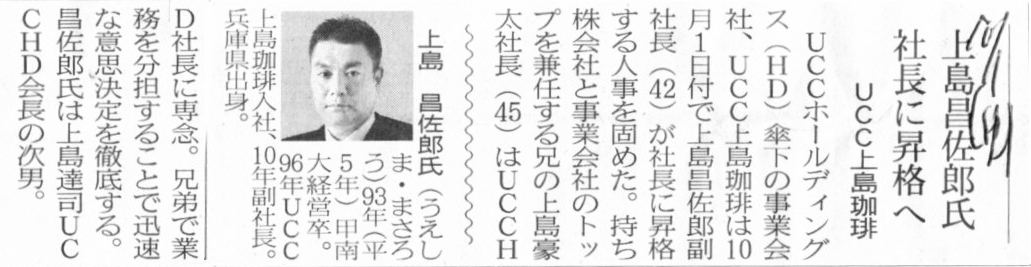 上島昌佐郎氏
社長に昇格へ
UCC上島珈琲
UCCホールディング
ス(HD)傘下の事業会
社、UCC上島珈琲は10
月1日付で上島昌佐郎副
社長(42)が社長に昇格
する人事を固めた。持ち
株会社と事業会社のトッ
プを兼任する兄の上島豪
太社長(45)はUCCH
D社長に専念。兄弟で業
務を分担することで迅速
な意思決定を徹底する。
昌佐郎氏は上島達司UC
CHD会長の次男。
上島 昌佐郎氏(うえし
ま・まさろ
う)93年(平
5年)甲南
大経営卒。
96年UCC
上島珈琲入社、10年副社長。
兵庫県出身。